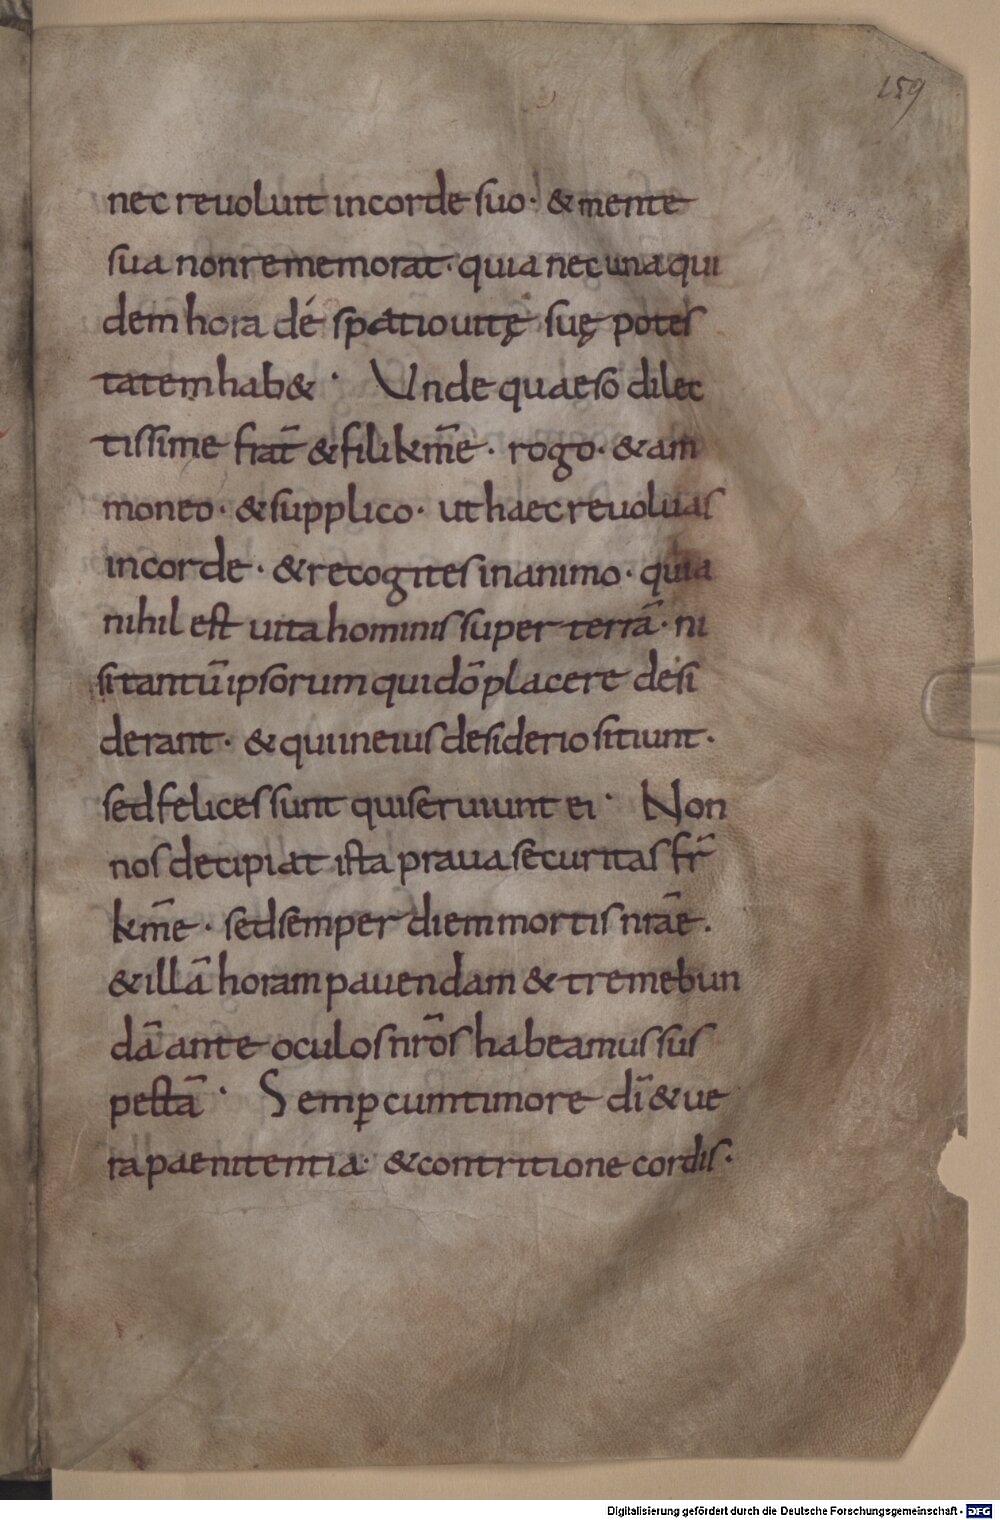 159
nec reuoluit in corde suo · & mente
sua non rememorat · quia nec una qui
dem hora dé spatio uitę suę potes
tatem hab& · Unde quaeso dilec
tissime frat̄ & fili km̄e · rogo · & am
moneo · & supplico · ut haec reuoluas
in corde · & recogites in animo · quia
nihil est uita hominis super terrā · ni
si tantū ipsorum qui dō placere desi
derant · & qui in eius desiderio sitiunt ·
sed felices sunt qui seruiunt ei · Non
nos decipiat ista praua securitas fr̄
km̄e · sed semper diem mortis nrāe ·
& illā horam pauendam & tremebun
dā ante oculos nrōs habeamus sus
pectā · Semp̱ cum timore dī & ue
ra paenitentia · & contritione cordis ·
Digitalisierung gefördert durch die Deutsche Forschungsgemeinschaft - DFG